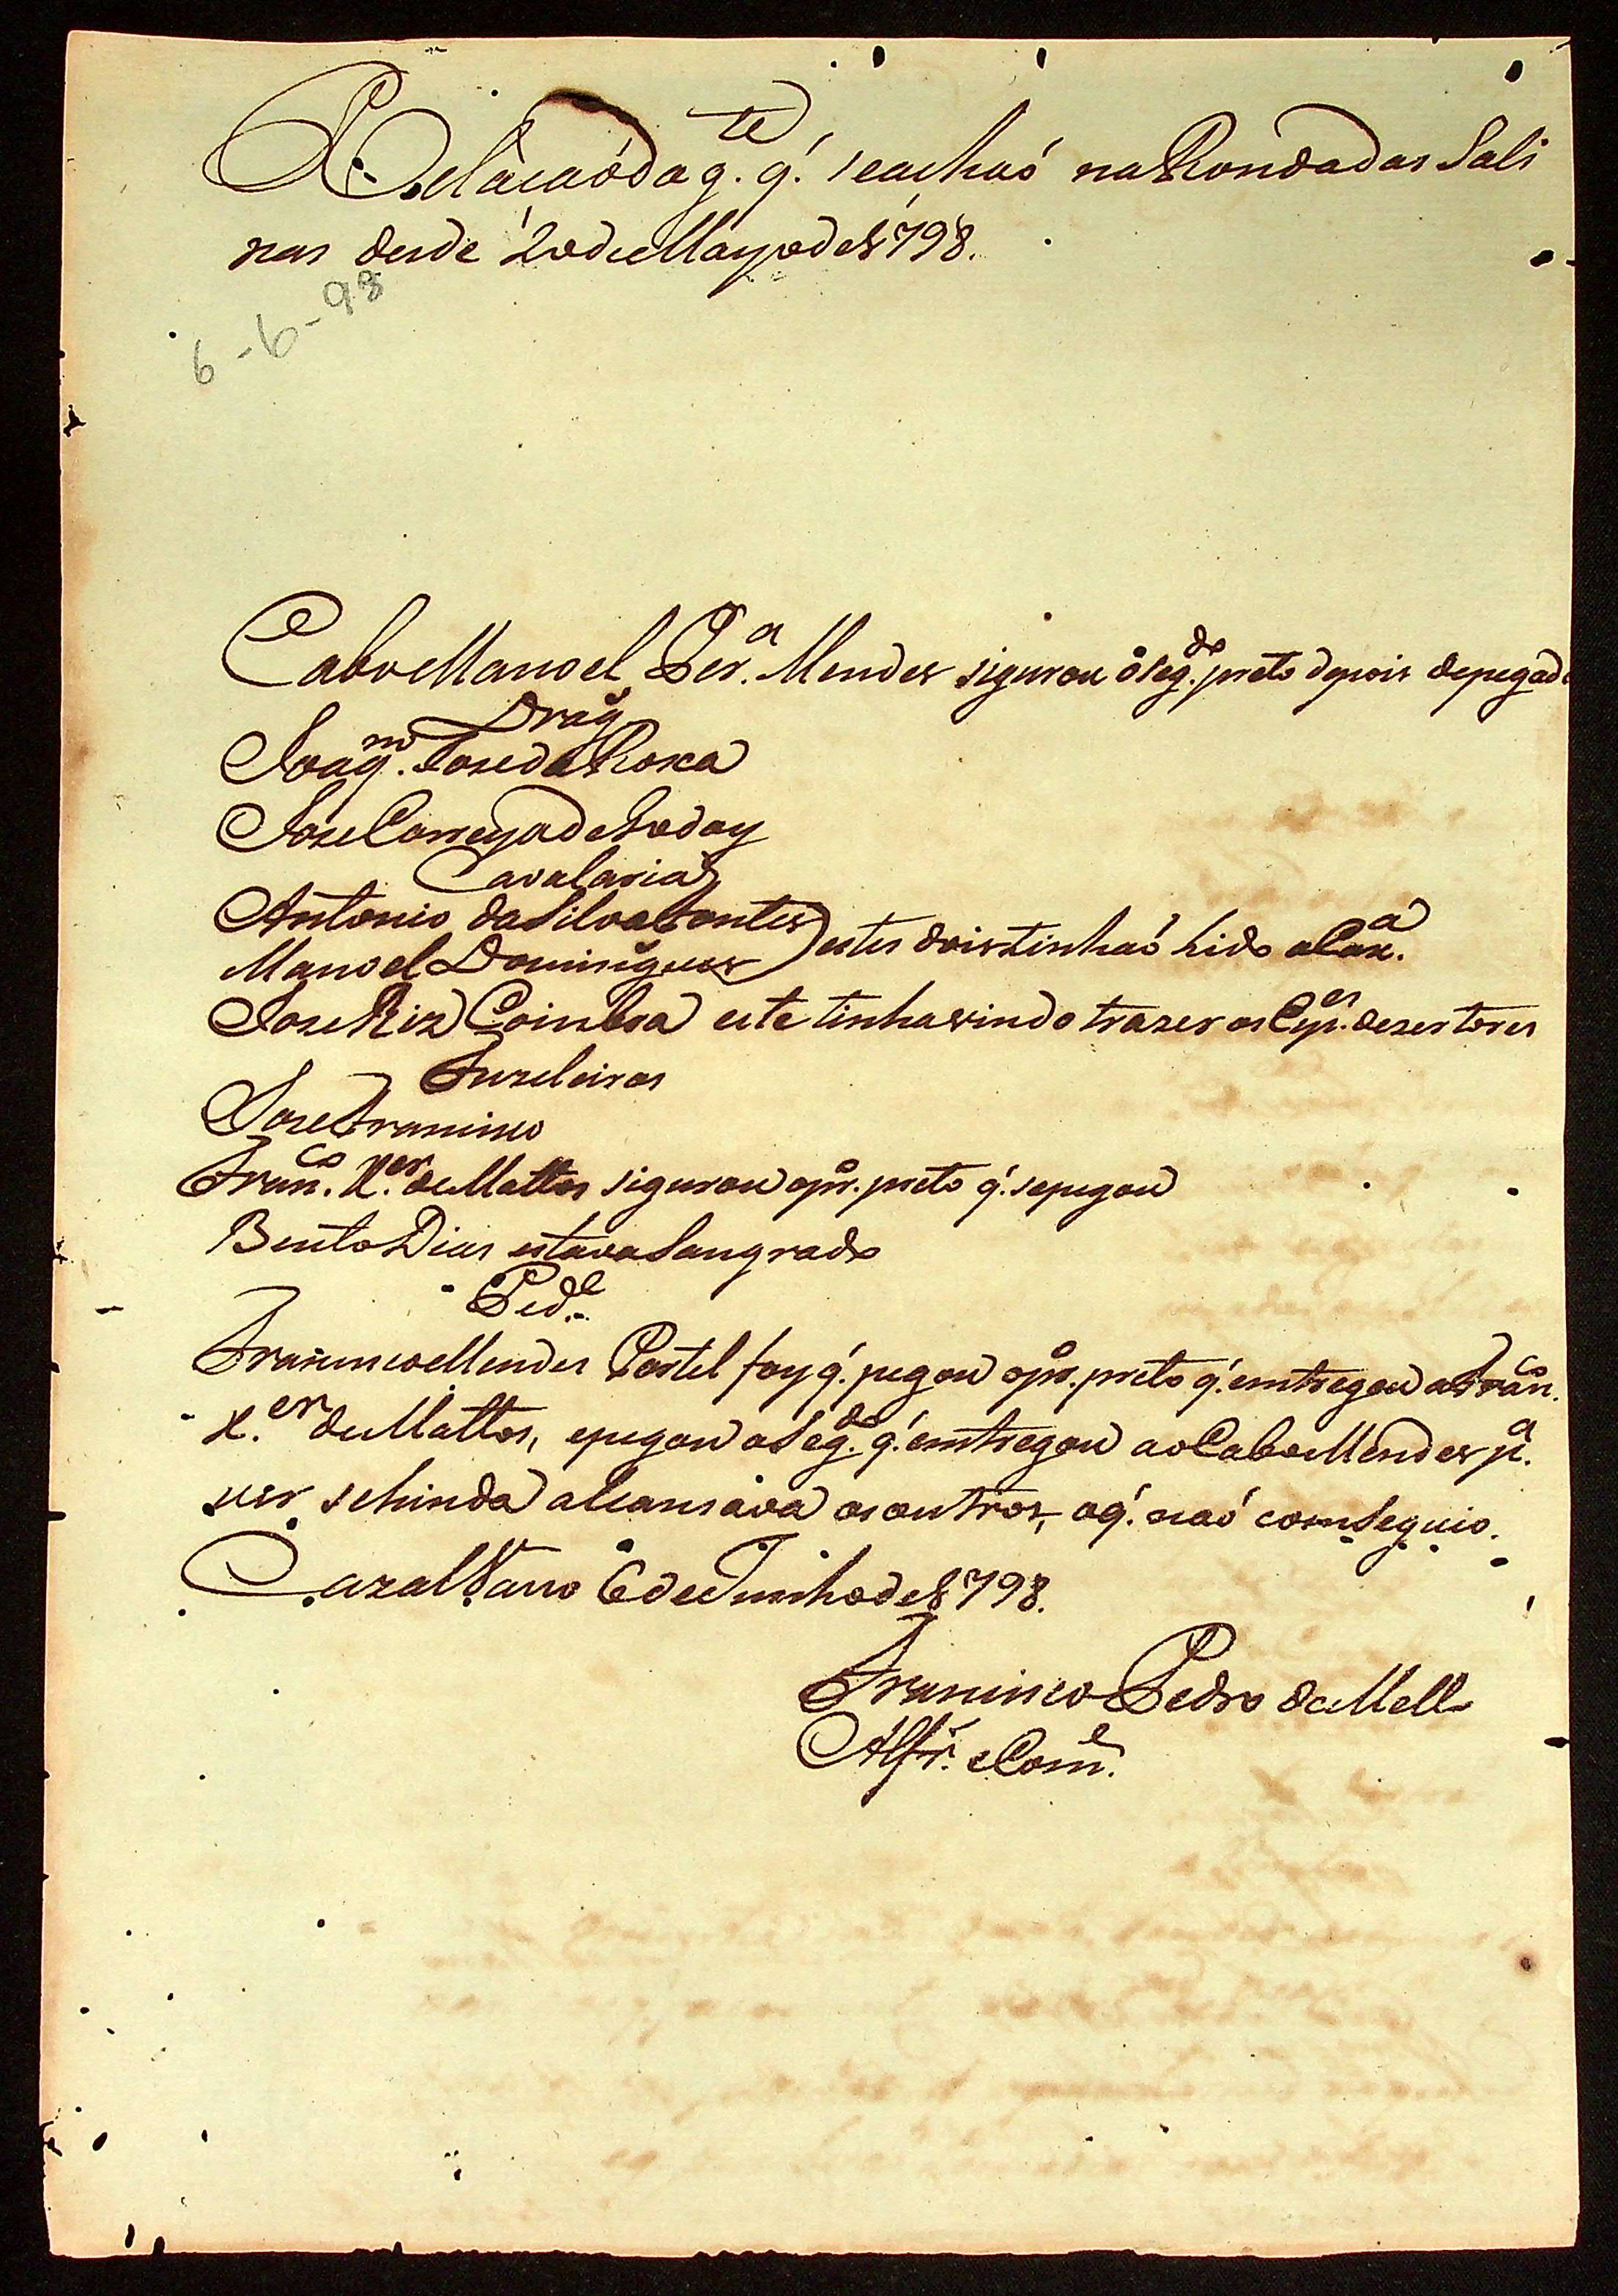 Relacaó da g.te q́. se achaó na Ronda das Sali
nas desde 20 de Mayo de 1798.
6-6-98
Cabo Manoel Per.a Mendes sigurou o seg.do preto depois de pegado
Drag
Joaq.m Jose da Roza
Jose Correya de
Cavalaria
Antonio da Silva Fontes
Manoel Domingues estes dois tinhaó hido a Cax.a
Jose Riz Coimbra este tinha vindo trazer os desertores
Fuzeleiros
Jose Francisco
Fran.co X.er de Mattos sigurou o pr.o preto q́. se pegou
Bento Dias estava Sangrado
Ped.e
Francisco Mendes Pastel foy q́. pegou o pr.o preto q́. emtregou a Fran.co
X.er de Mattos, e pegou o Seg.do q́. emtregou ao Cabo Mendes p.a
ver se hinda alcansava os outros, o q́. naó comseguio.
6 de Junho de 1798.
Francisco Pedro de Mello
Alfr. e Com.e